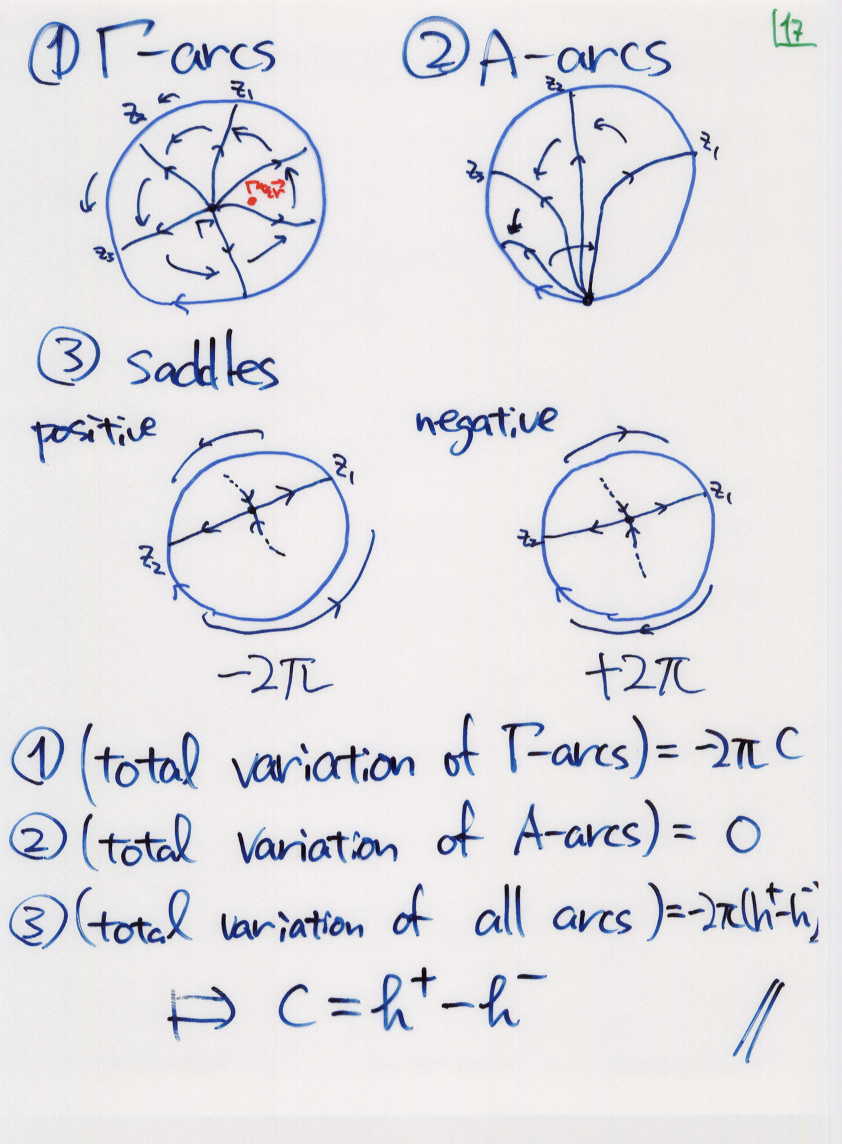 17
① Γ-arcs
② A-arcs
z₂
z₁
Γ
z₃
z₂
z₁
z₃
③ saddles
positive
negative
z₁
z₂
z₁
z₂
-2π
+2π
① (total variation of Γ-arcs) = -2π C
② (total variation of A-arcs) = 0
③ (total variation of all arcs) = -2π(h⁺-h⁻)
↦ C = h⁺ - h⁻ //